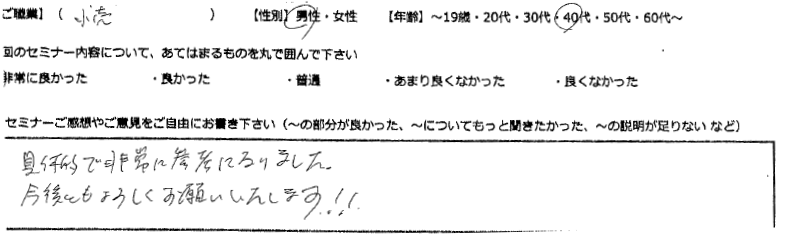 ご職業】( 小売 ) 【性別】男性・女性 【年齢】～19歳・20代・30代・40代・50代・60代～
回のセミナー内容について、あてはまるものを丸で囲んで下さい
非常に良かった ・良かった ・普通 ・あまり良くなかった ・良くなかった
セミナーご感想やご意見をご自由にお書き下さい（～の部分が良かった、～についてもっと聞きたかった、～の説明が足りない など）
具体的で非常に参考になりました。
今後ともよろしくお願いいたします!!!